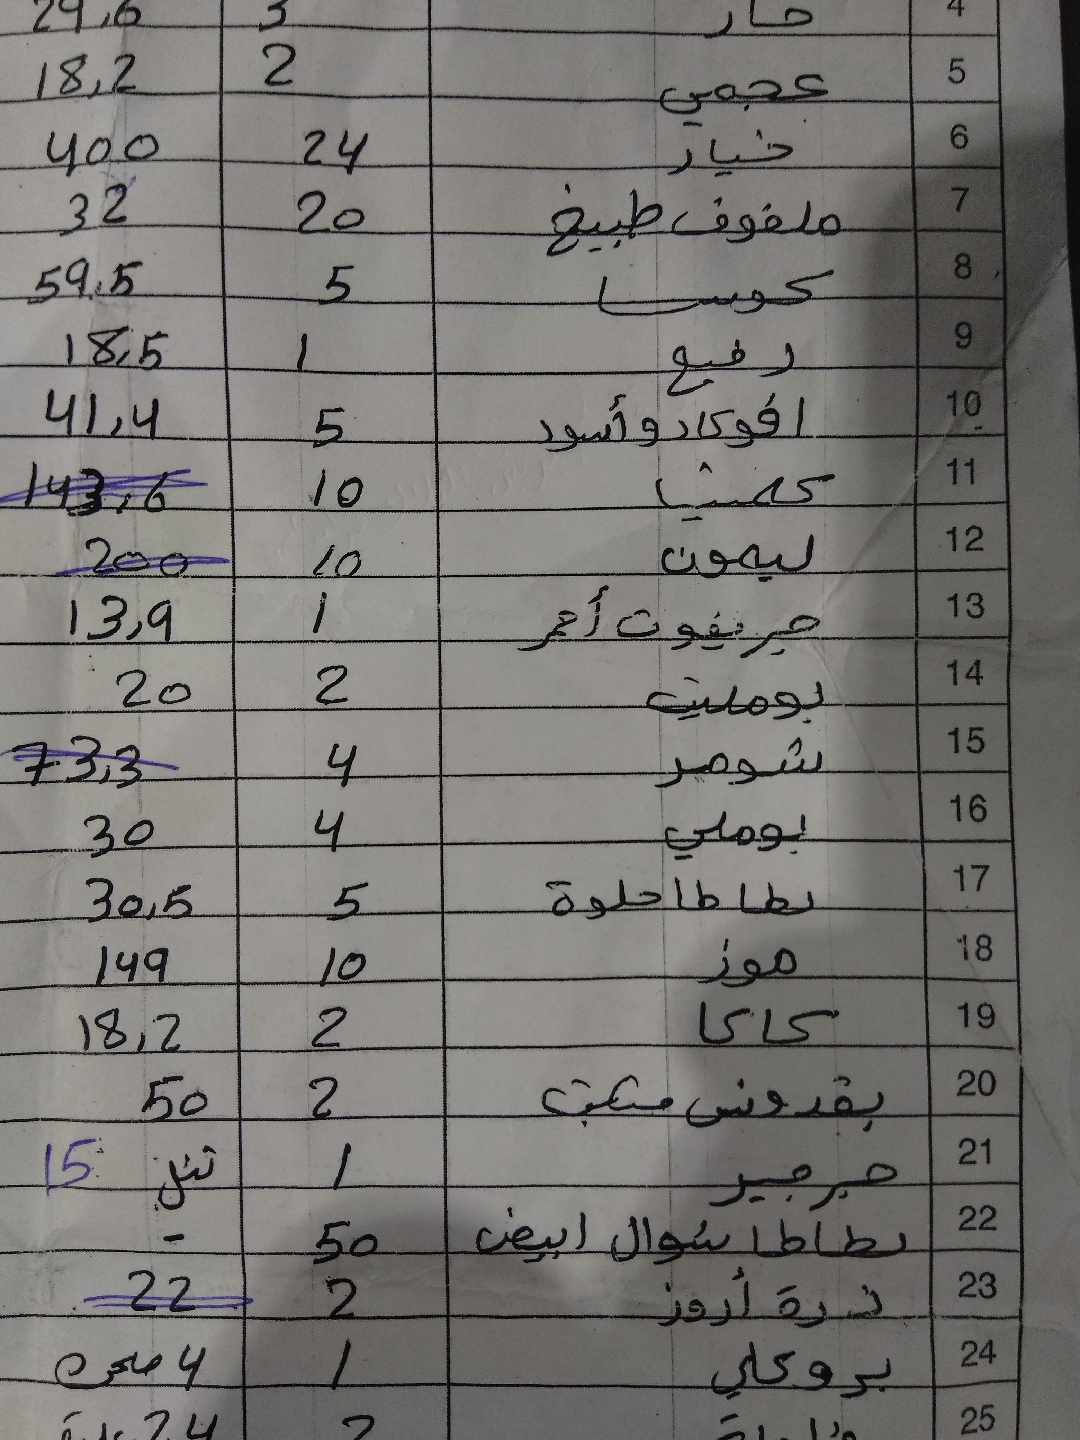 4 حار 3 29,6
5 عجمي 2 18,2
6 خيار 24 400
7 ملفوف طبيخ 20 32
8 كوسا 5 59.5
9 رفيع 1 18,5
10 افوكادو أسود 5 41,4
11 كلمنتينا 10 143,6
12 ليمون 10 200
13 جريفوت أحمر 1 13,9
14 بومليت 2 20
15 شومر 4 73,3
16 بوملي 4 30
17 بطاطا حلوة 5 30,5
18 موز 10 149
19 كاكا 2 18,2
20 بقدونس مكتب 2 50
21 جرجير 1 تنل 15
22 بطاطا شوال ابيض 50 -
23 ذرة أروز 2 22
24 بروكلي 1 4 صحن
25 2 24